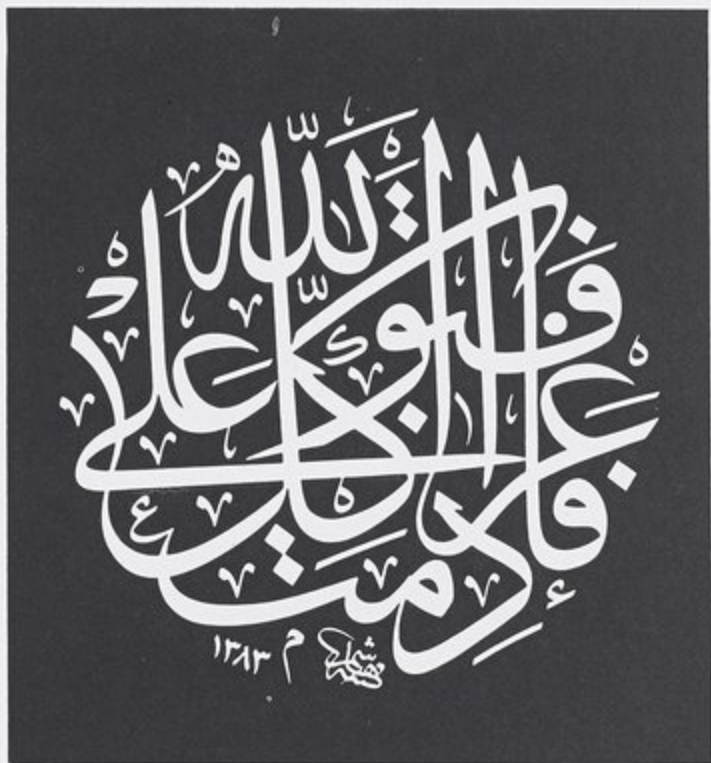 فَإِذَا عَزَمْتَ فَتَوَكَّلْ عَلَى اللَّهِ
م ١٣٨٣